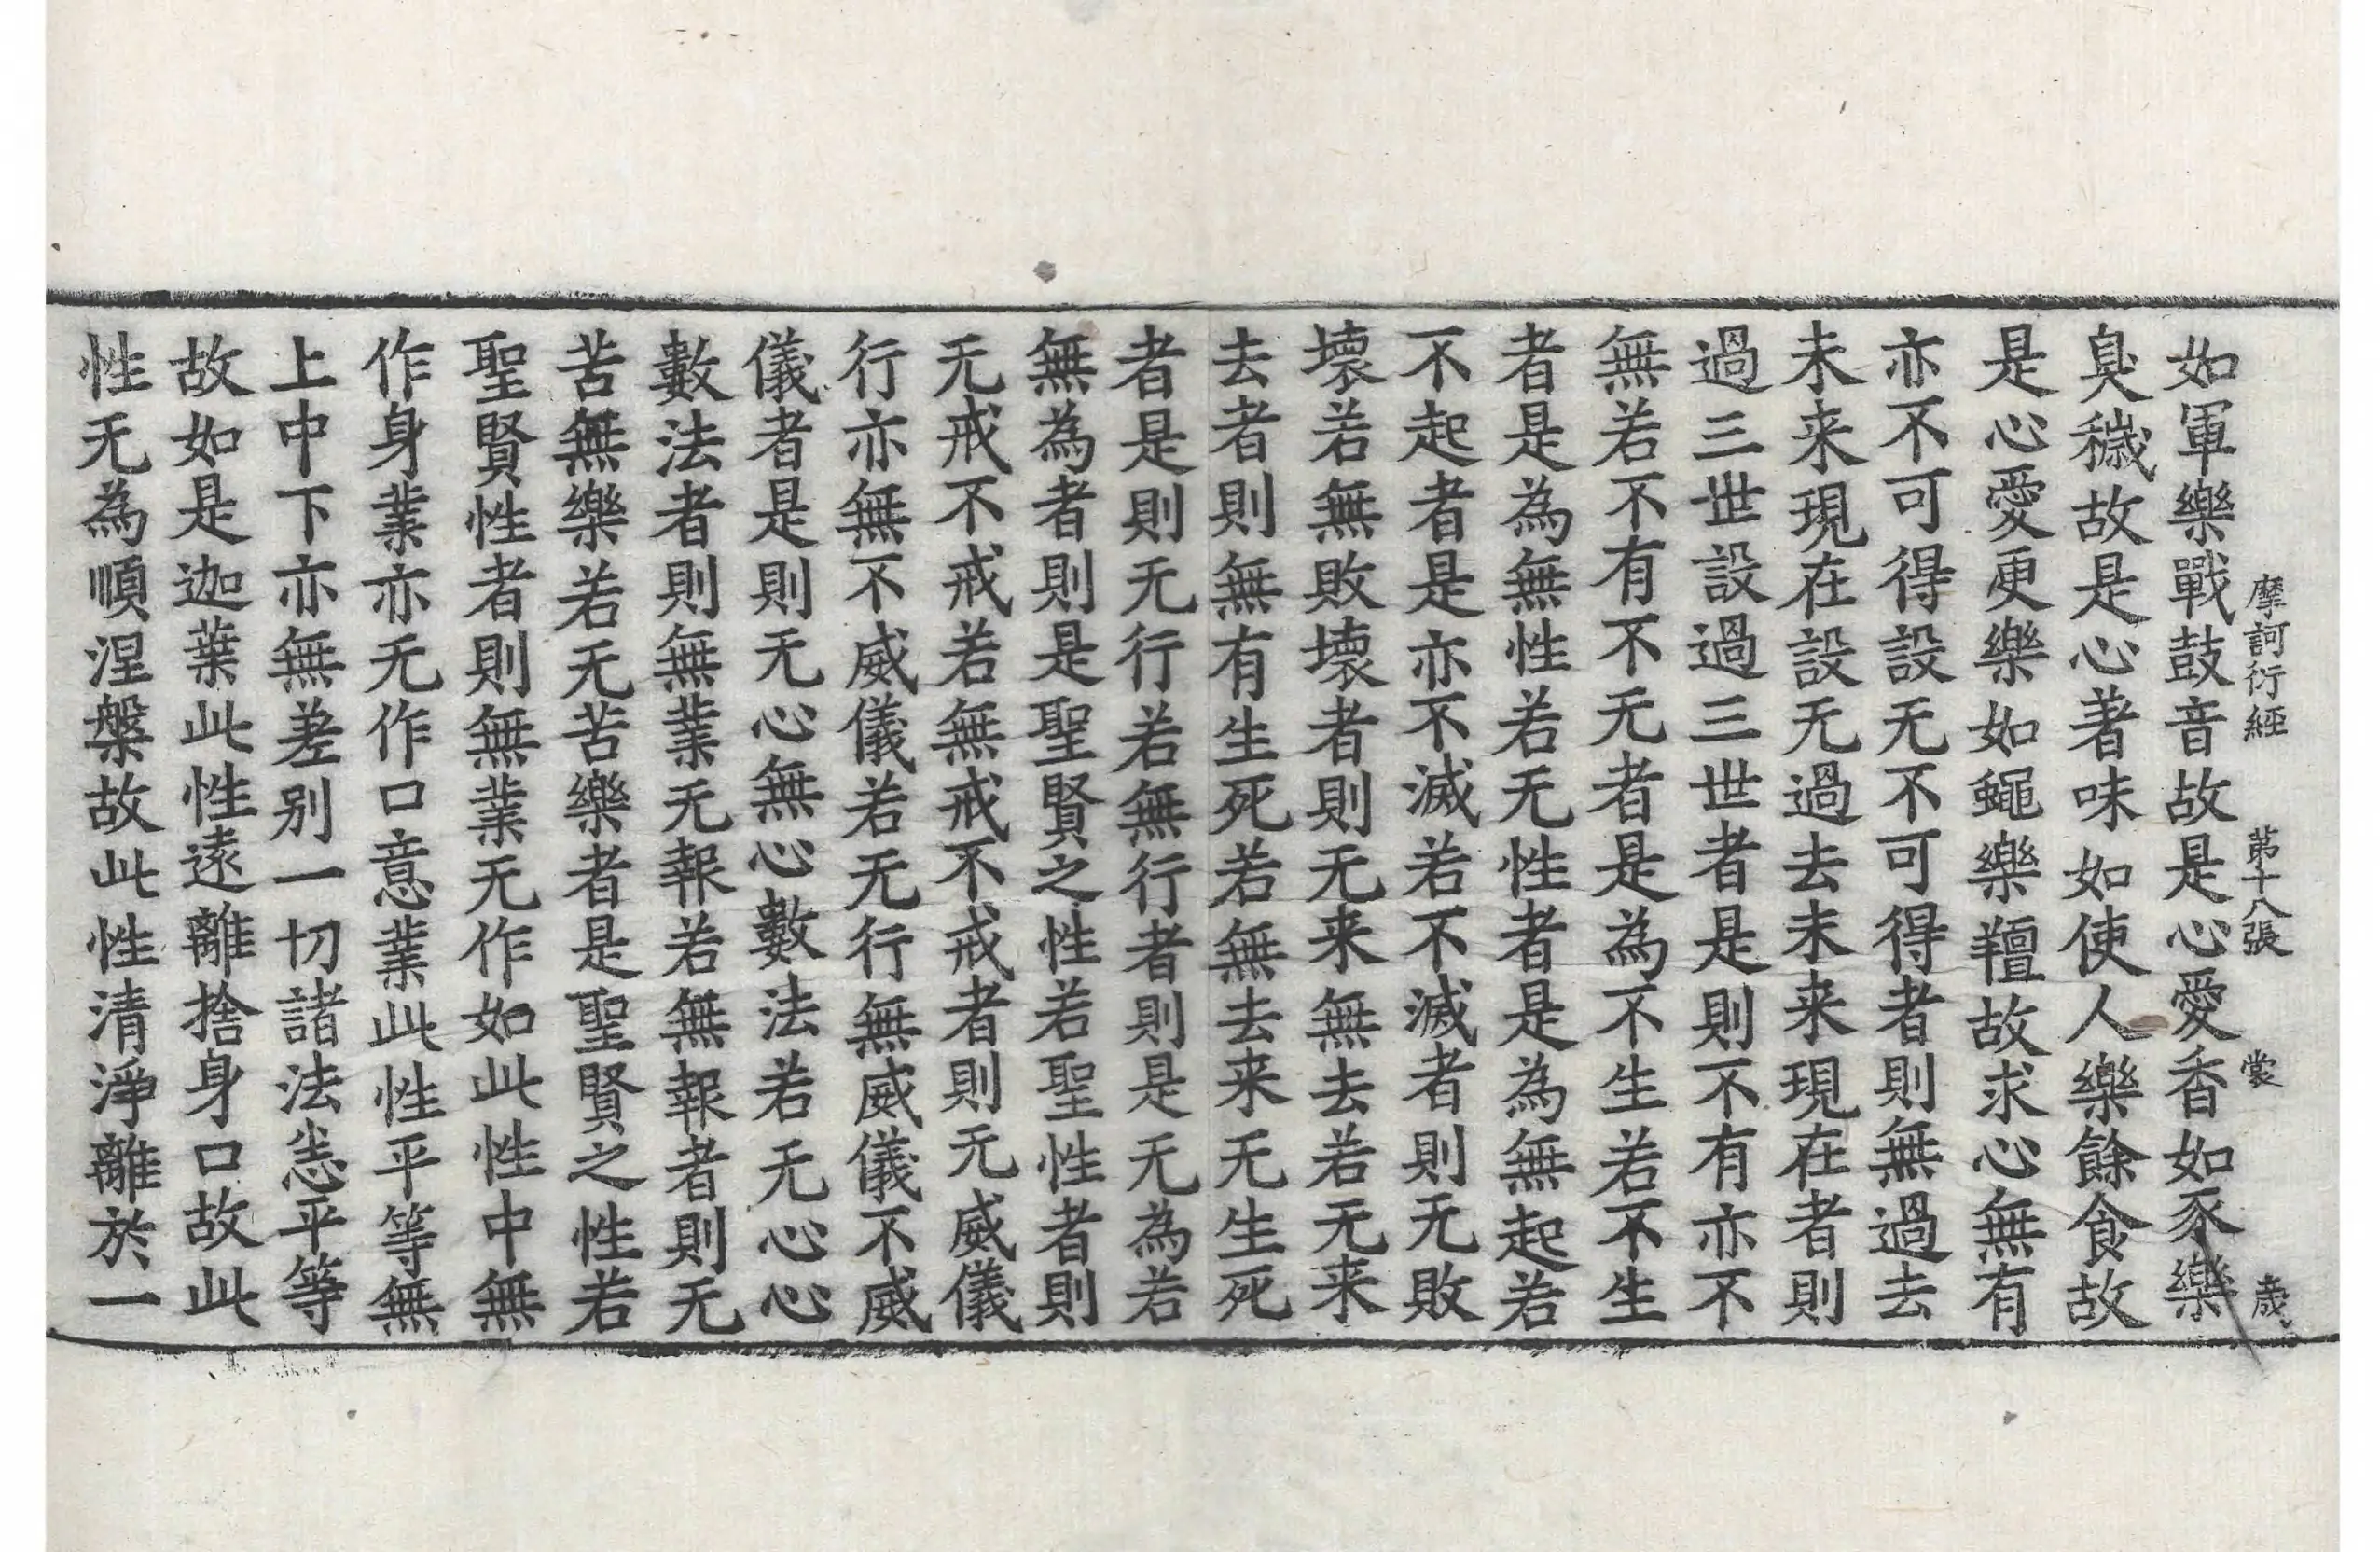 摩訶衍經 第十八張 裳 歲
如軍樂戰鼓音故是心愛香如豕樂
臭穢故是心著味如使人樂餘食故
是心愛更樂如蠅樂羶故求心無有
亦不可得設无不可得者則無過去
未来現在設无過去未来現在者則
過三世設過三世者是則不有亦不
無若不有不无者是為不生若不生
者是為無性若无性者是為無起若
不起者是亦不滅若不滅者則无敗
壞若無敗壞者則无来無去若无来
去者則無有生死若無去来无生死
者是則无行若無行者則是无為若
無為者則是聖賢之性若聖性者則
无戒不戒若無戒不戒者則无威儀
行亦無不威儀若无行無威儀不威
儀者是則无心無心數法若无心心
數法者則無業无報若無報者則无
苦無樂若无苦樂者是聖賢之性若
聖賢性者則無業无作如此性中無
作身業亦无作口意業此性平等無
上中下亦無差别一切諸法悉平等
故如是迦葉此性遠離捨身口故此
性无為順涅槃故此性清淨離於一